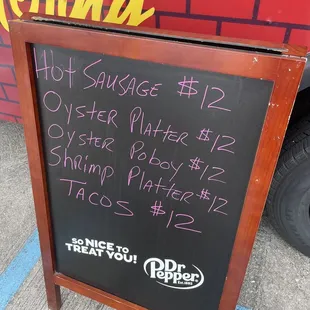 Hot Sausage $12
Oyster Platter $12
Oyster Poboy $12
Shrimp Platter $12
Tacos $12
SO NICE TO
TREAT YOU!
Dr
Pepper
EST. 1885